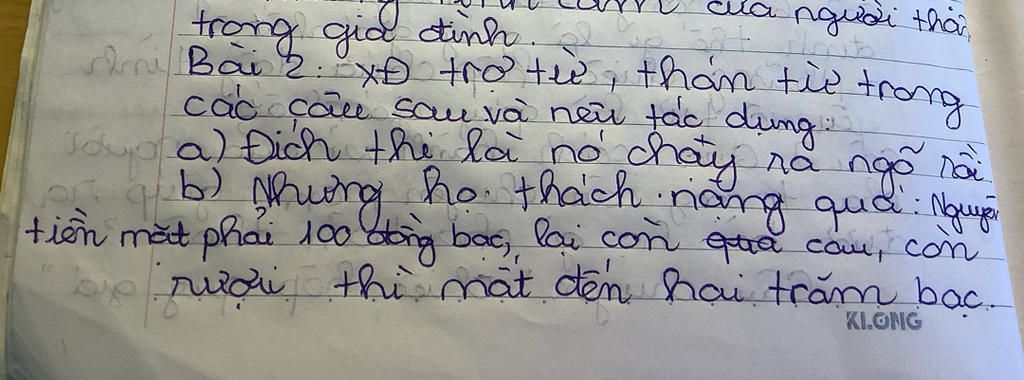 của người thân
trong gia đình.
Bài 2: XĐ trợ từ, thán từ trong
các câu sau và nêu tác dụng:
a) Đích thị là nó chạy ra ngõ rồi
b) Nhưng họ thách nặng quá: Nguyên
tiền mặt phải 100 đồng bạc, lại còn cau, còn
rượu thì mất đến hai trăm bạc.
KLONG